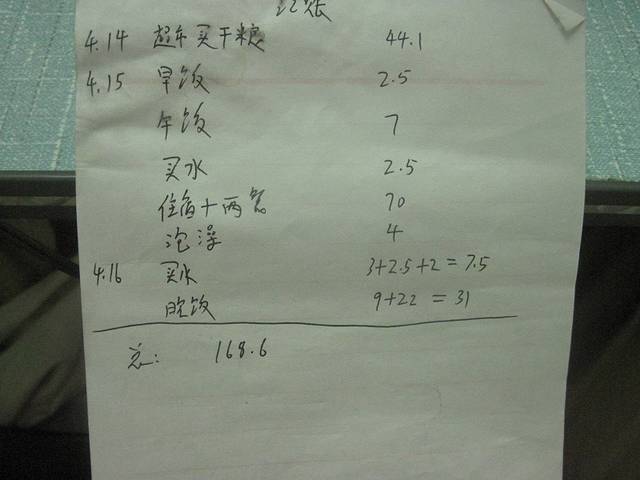 记账
4.14 超市买干粮 44.1
4.15 早饭 2.5
午饭 7
买水 2.5
住宿+两餐 70
泡澡 4
4.16 买水 3+2.5+2=7.5
晚饭 9+22=31
总: 168.6